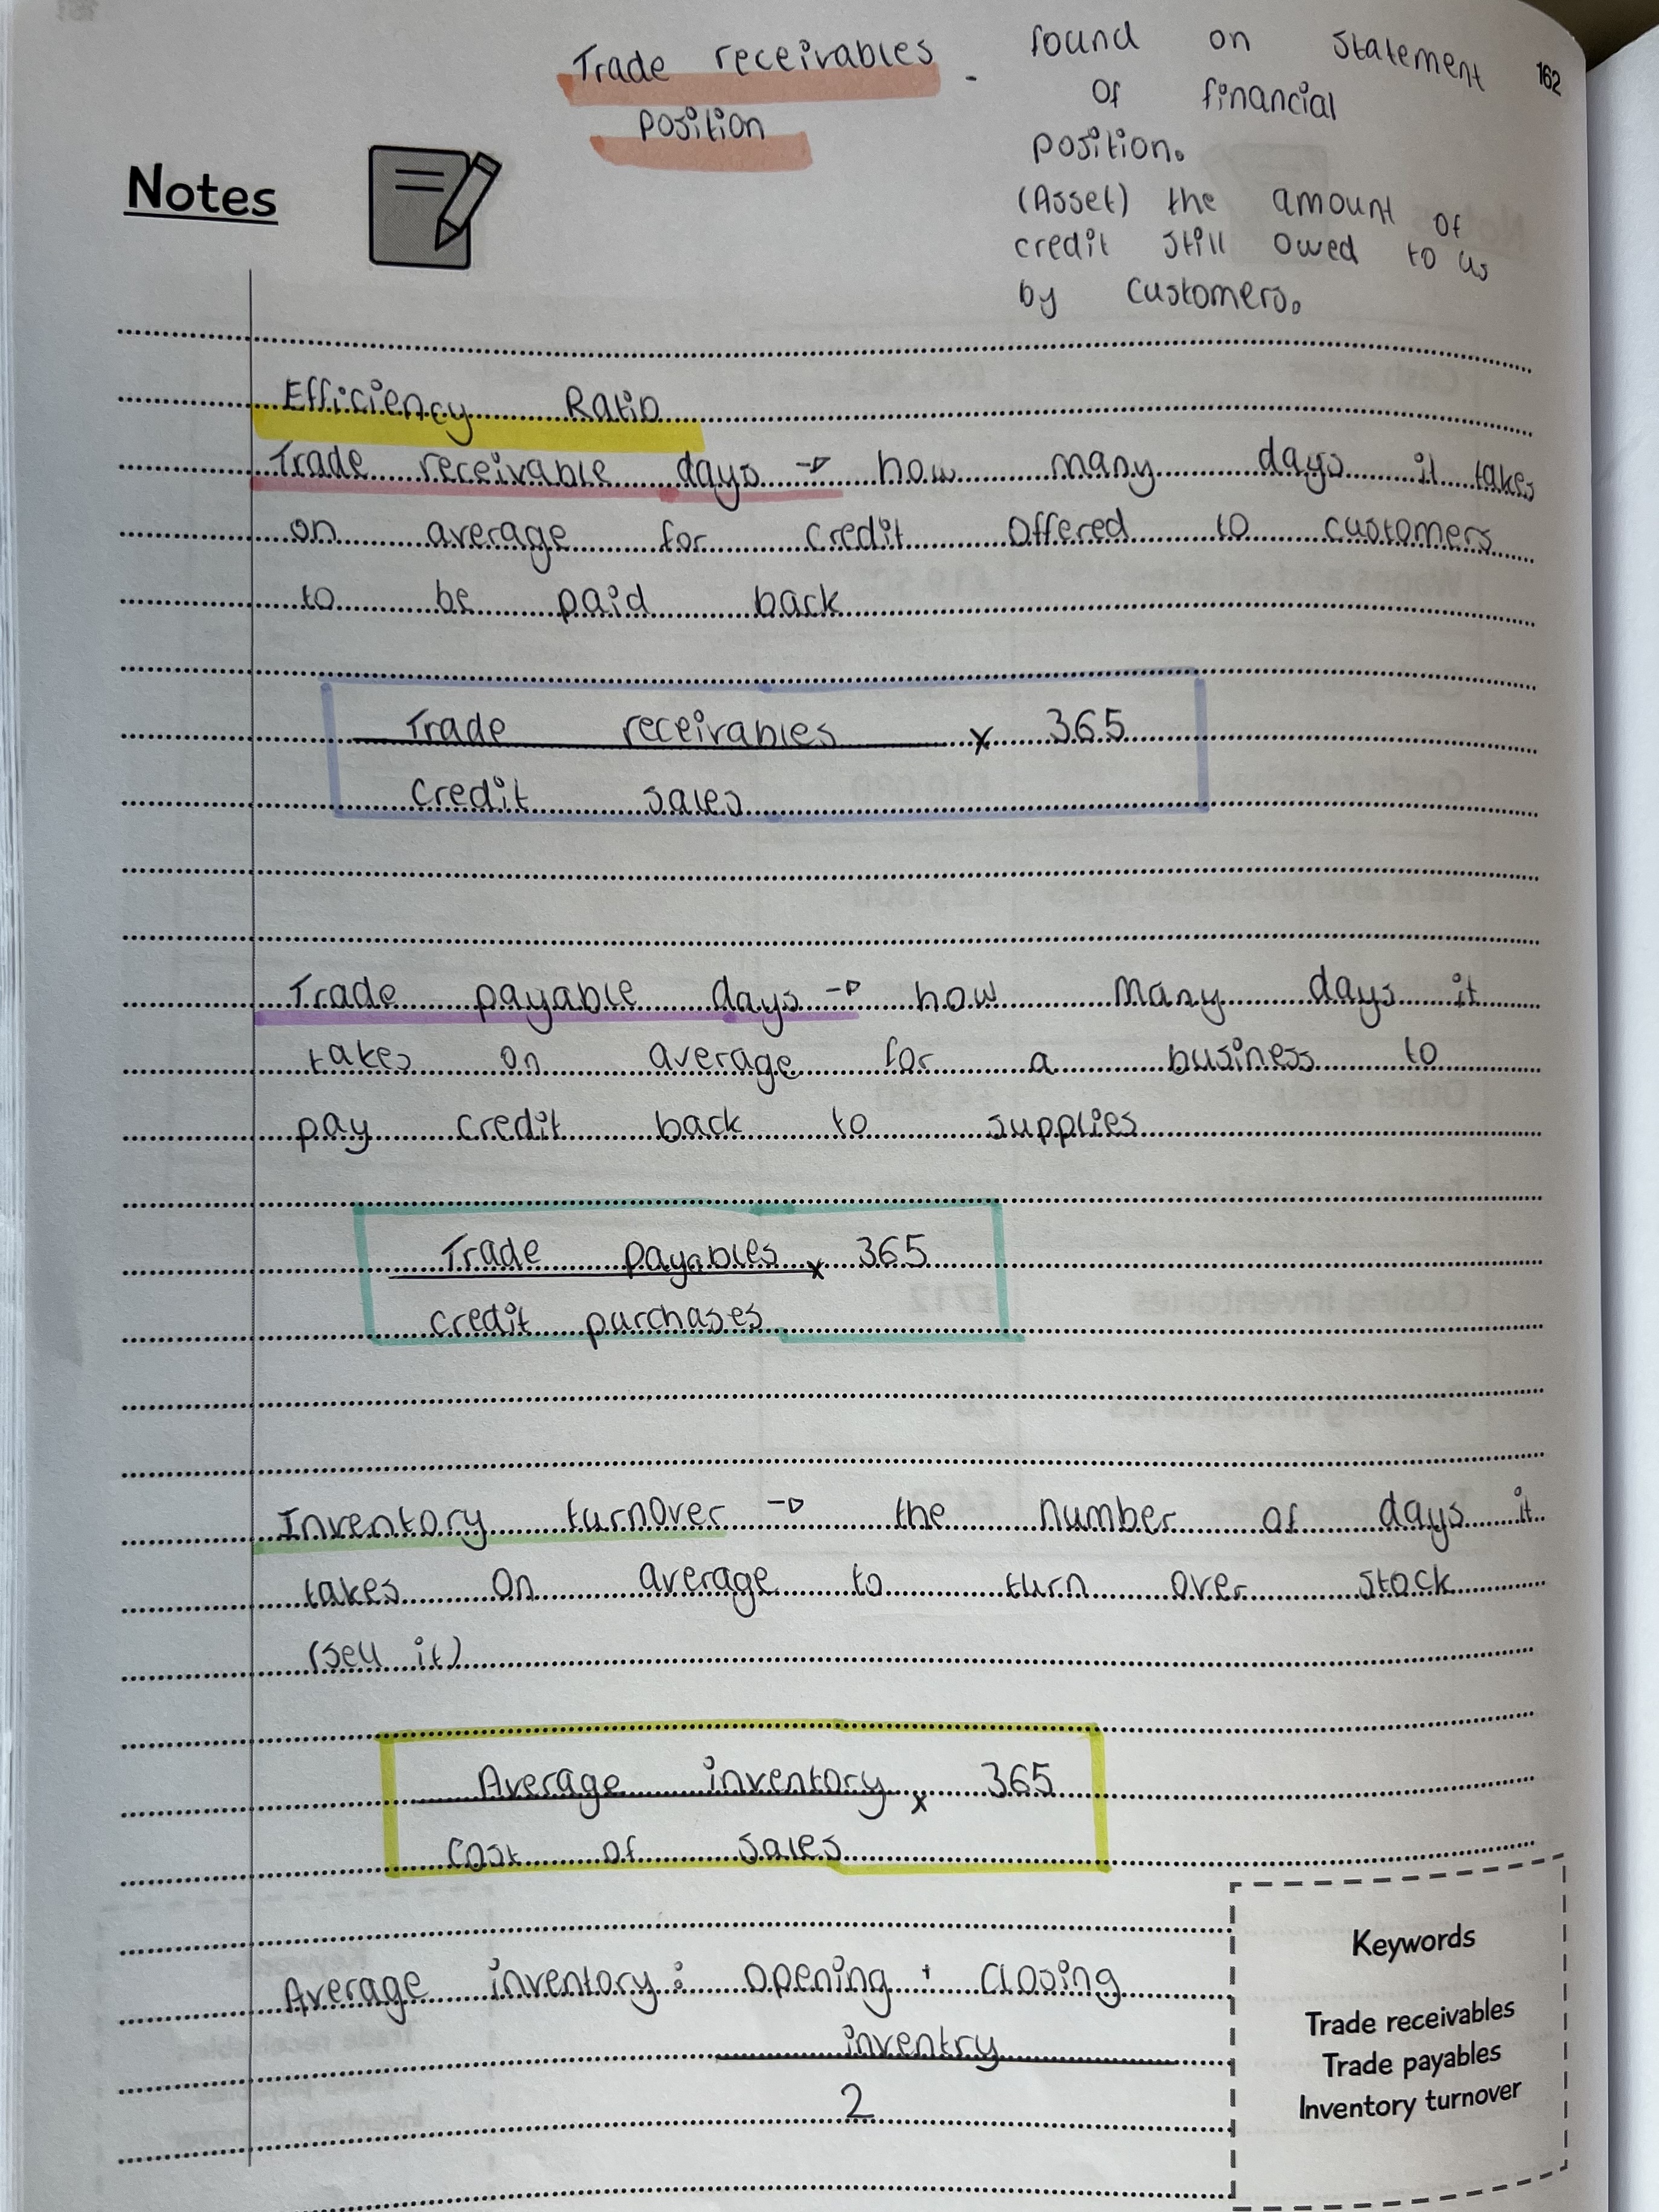 Trade receivables - found on Statement 162
position of financial
position.
(Asset) the amount of
credit still owed to us
by customers.
Notes
Efficiency Ratio
Trade receivable days → how many days it takes
on average for credit offered to customers
to be paid back
Trade receivables x 365
Credit sales
Trade payable days → how many days it
takes on average for a business to
pay credit back to supplies
Trade payables x 365
credit purchases
Inventory turnover → the number of days it
takes on average to turn over stock
(sell it)
Average inventory x 365
Cost of sales
Average inventory: opening + closing
inventry
2
Keywords
Trade receivables
Trade payables
Inventory turnover